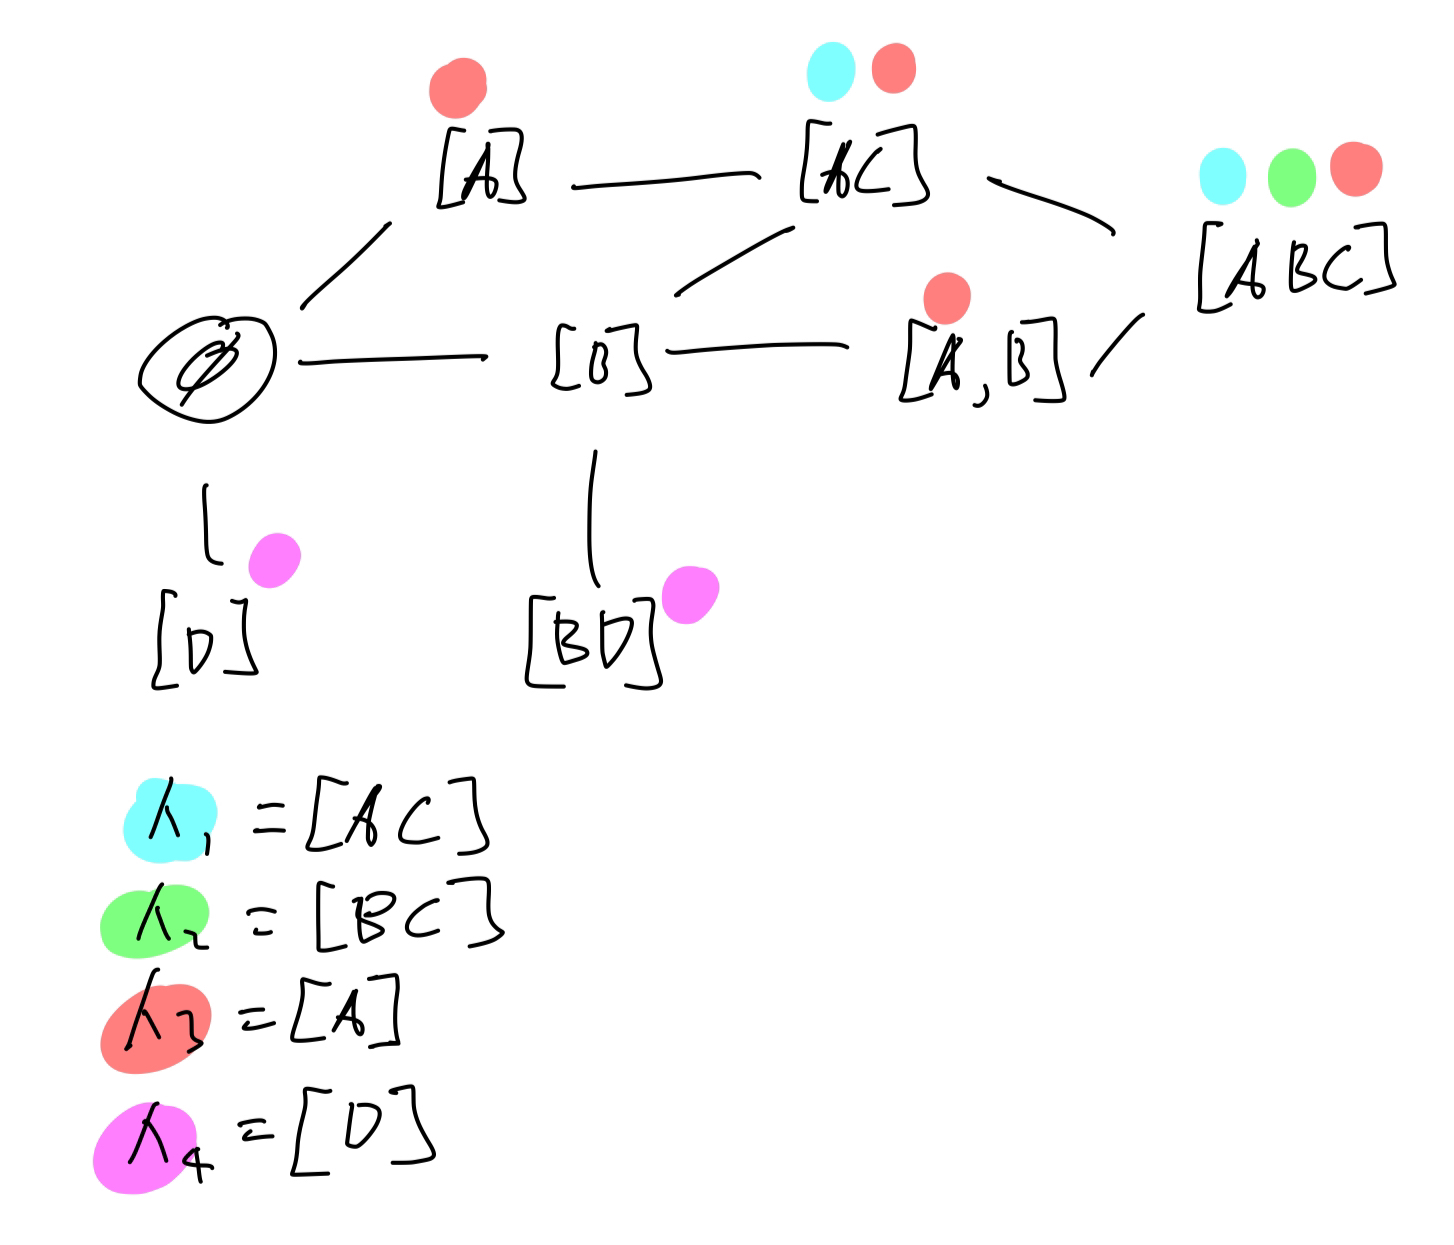 [A]
[AC]
[ABC]
∅
[B]
[A,B]
[D]
[BD]
λ1 = [AC]
λ2 = [BC]
λ3 = [A]
λ4 = [D]